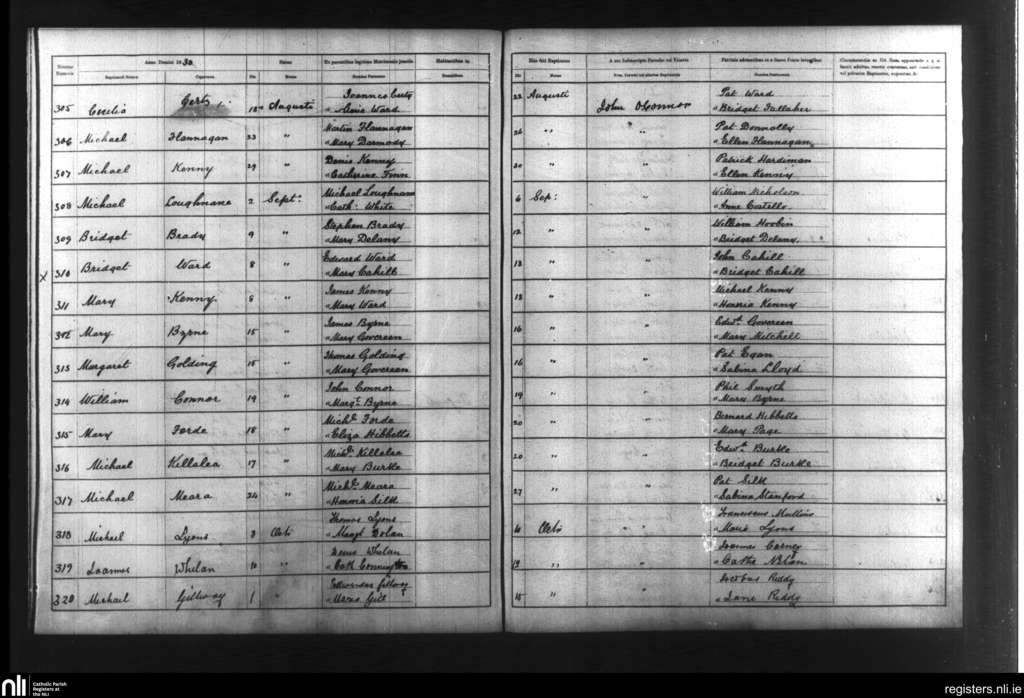 Anno Domini 1830
Natus
Ex parentibus legitimo Matrimonio junctis
Habitantibus in
Die fuit Baptizatus
A me Subscripto Parocho vel Vicario
Baptizati Nomen
Cognomen
Die
Mense
Nomina Parentum
Die
Mense
305 Cecilia 18 Augusti 22 Augusti John OConnor Pat Ward
" Anne Ward " Bridget
306 Michael Flannagan 23 " Martin Flannagan 24 " " Pat Donnolly
" Mary Darmody " Ellen Flannagan
307 Michael Kenny 29 " Denis Kenny 30 " " Patrick Hardiman
" Catherine Finn " Ellen Kenny
308 Michael Loughnane 2 Sept: " Michael Loughnane 6 Sep: " William Nicholson
" Cath: White " Anne Costello
309 Bridget Brady 9 " Stephen Brady 12 " " William Hoobin
" Mary Delany " Bridget Delany
X 310 Bridget Ward 8 " Edward Ward 13 " " John Cahill
" Mary Cahill " Bridget Cahill
311 Mary Kenny 8 " James Kenny 13 " " Michael Kenny
" Mary Ward " Honoria Kenny
312 Mary Byrne 15 " James Byrne 16 " " Edwd. Govereen
" Mary Govereen " Mary Mitchell
313 Margaret Golding 15 " Thomas Golding 16 " " Pat Egan
" Mary Govereen " Sabina Lloyd
314 William Connor 19 " John Connor 19 " " Phil Smyth
" Margt. Byrne " Mary Byrne
315 Mary Forde 18 " Michl. Forde 20 " " Bernard Hibbetts
" Eliza Hibbetts " Mary Page
316 Michael Killalea 17 " Michl. Killalea 20 " " Edwd. Burke
" Mary Burke " Bridget Burke
317 Michael Meara 24 " Michl. Meara 27 " " Pat Silk
" Honoria Silk " Sabina Stanford
318 Michael Lyons 3 Octo " Thomas Lyons Octo " Franciscus Mullins
" Margt " Maria Lyons
319 Joannes Whelan 10 " Whelan " " Joannes
" Cath
320 Michael Gillway 1 " Gillway 15 " Jacobus Reddy
" Maria Gill " Jane Reddy
nli
Catholic Parish
Registers at
the NLI
registers.nli.ie